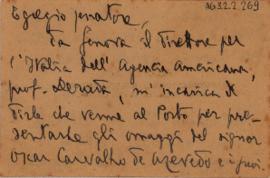 AG3.2.2.269
Egregio senatore,
da Genova il Direttore per
l'Italia dell'Agenzia Americana,
prof. m'incarica di
dirle che venne al Porto per pre-
sentarle gli omaggi del signor
Oscar Carvalho de Azevedo e i suoi.